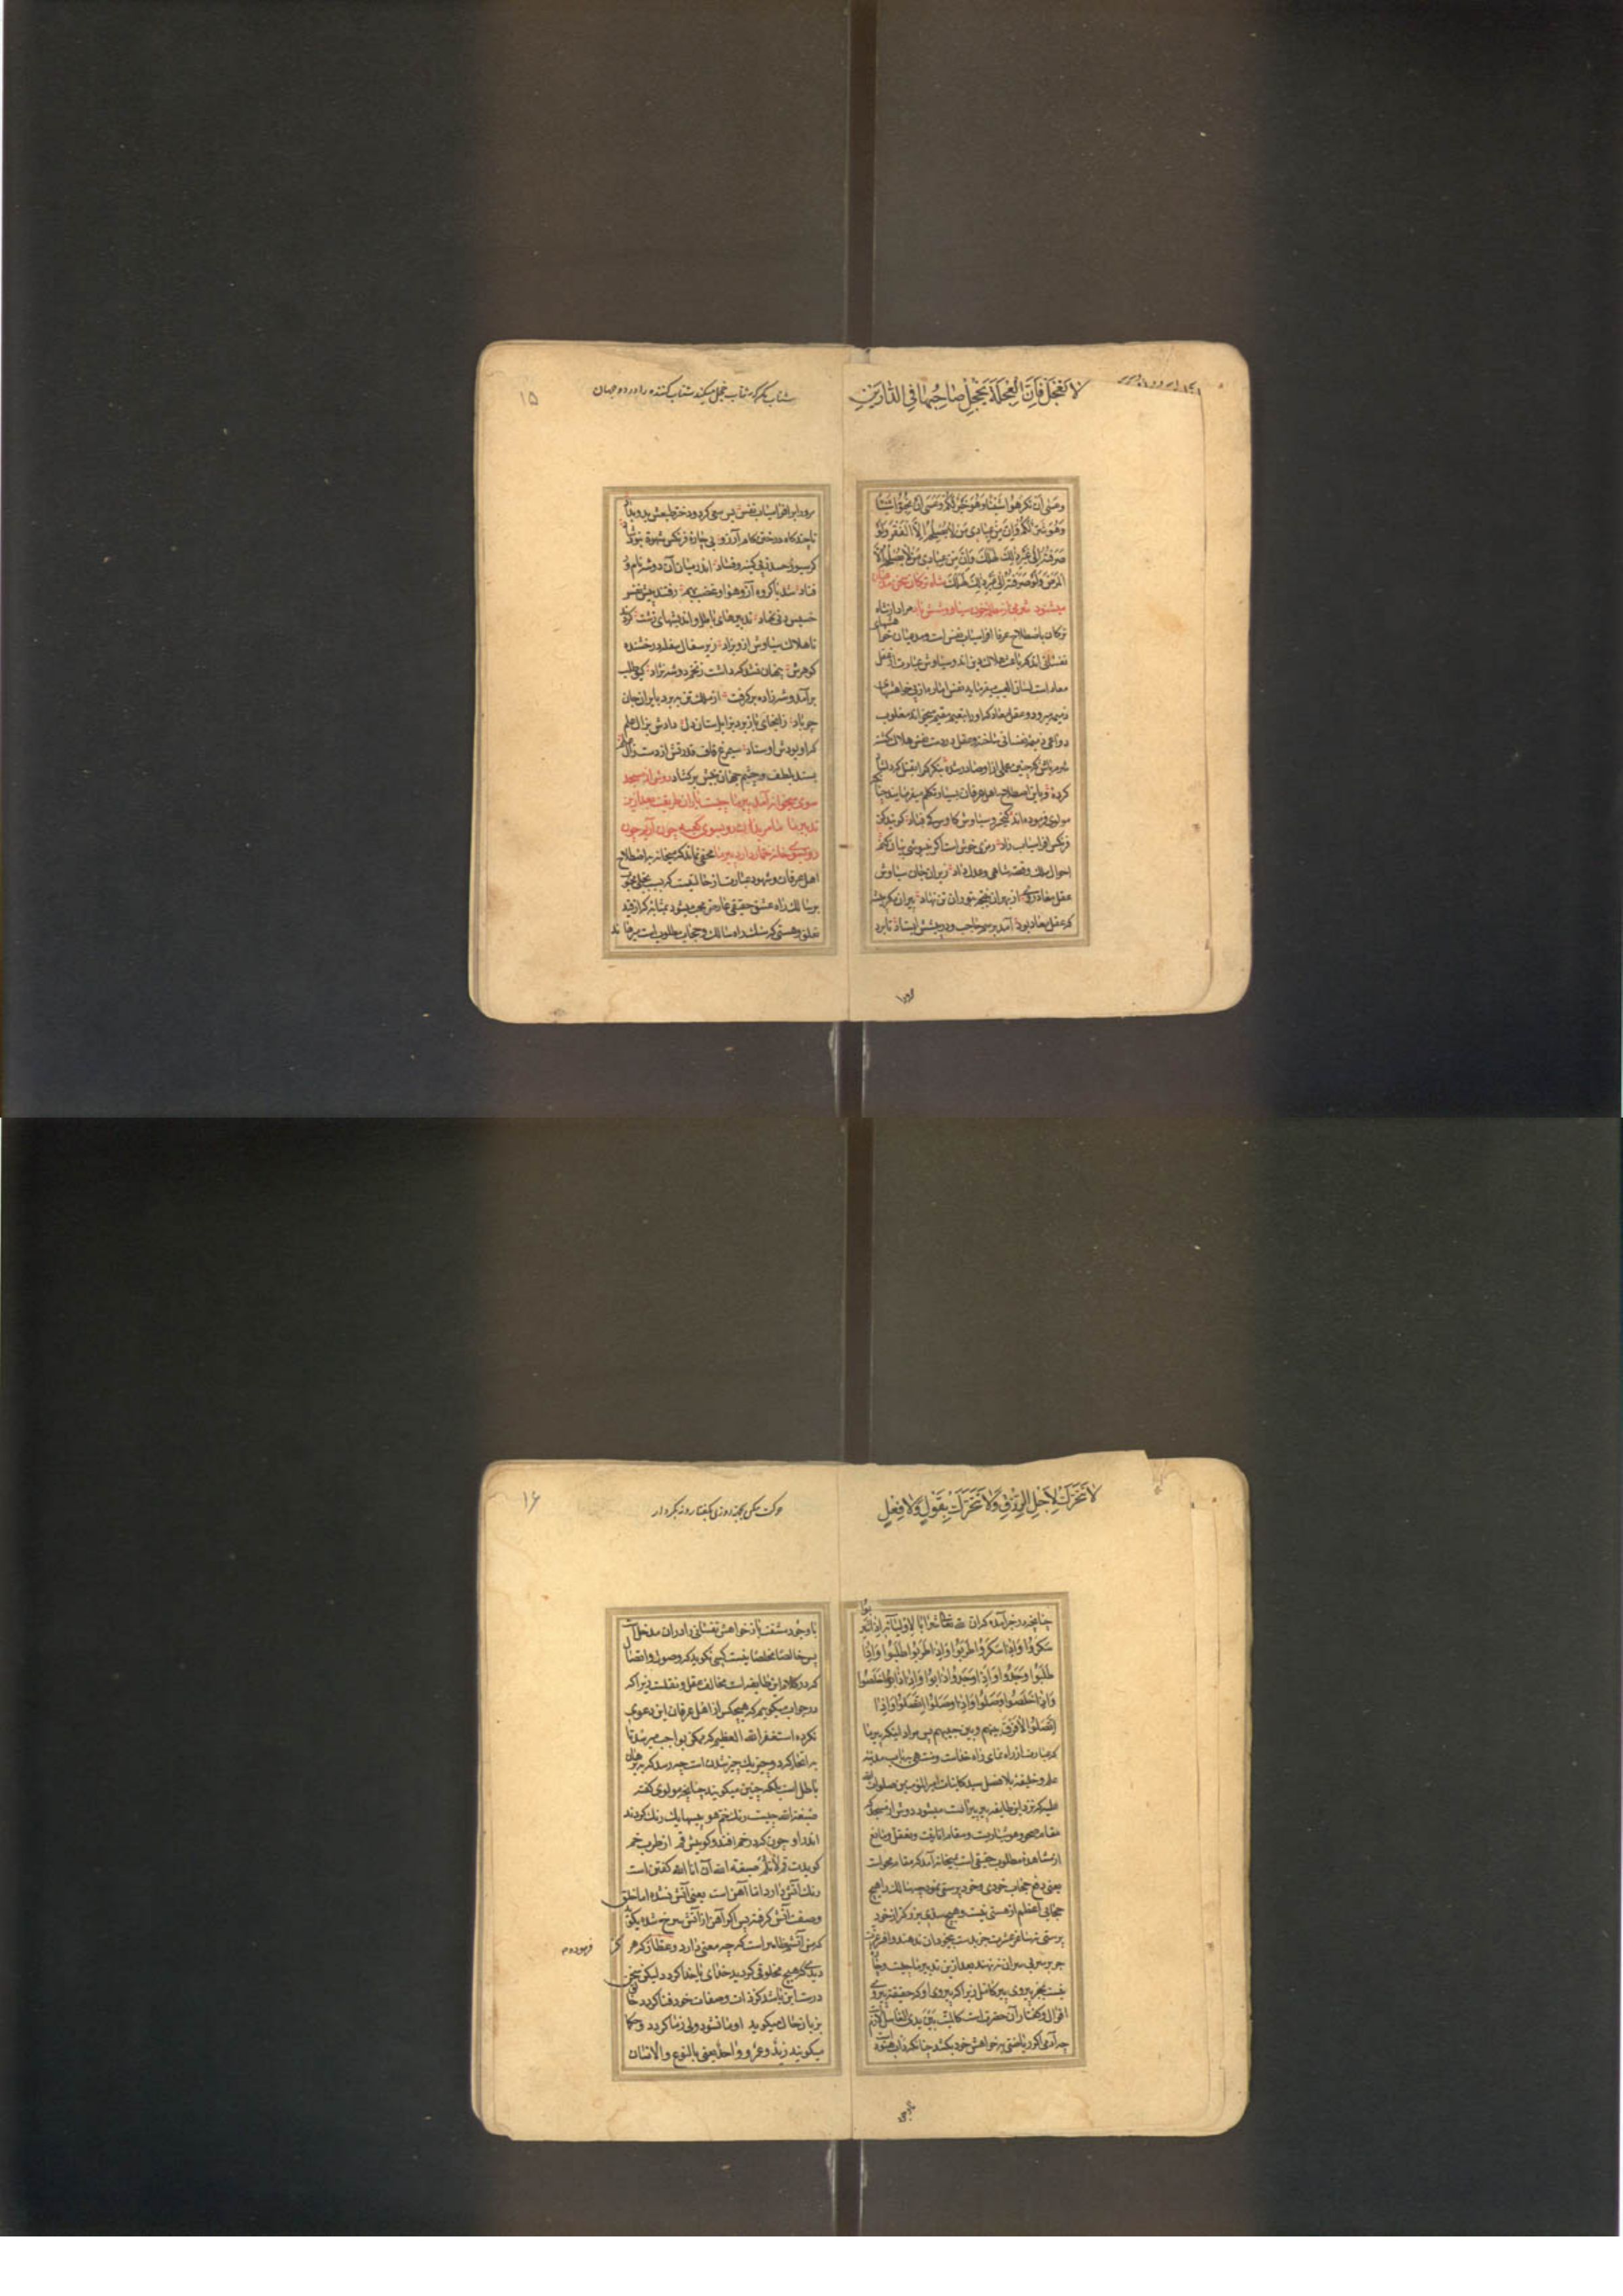 لا تعجل فان العجلة یخجل صاحبها فی الدارین
وعسی ان تکرهوا شیئا وهو خیر لکم وعسی ان تحبوا شیئا
وهو شر لکم فان من عبادی من لا یصلحه الا الفقر ولو
صرفته الی غیر ذلک لهلک وان من عبادی من لا یصلحه الا
المرض ولو صرفته الی غیر ذلک لهلک شاه ترکان سخن مدعیان
میشنود شرمی از مظلمه خون سیاووشش باد مراد از شاه
ترکان باصطلاح عرفا افراسیاب نفس است ومدعیان خواهشهای
نفسانی اند که باعث هلاک وی اند وسیاوش عبارت از عقل
معاد است لسان الغیب میفرماید نفس اماره از پی خواهشهای
ذمیمه میرود وعقل معاد که او را بنعیم مقیم میخواند مغلوب
دواعی ذمیمه نفسانی ساخته وعقل در دست نفس هلاک گشته
شرمش باد که چنین عملی از او صادر شده
کرده وباین اصطلاح اهل عرفان بسیار تکلم میفرمایند چنانچه
مولوی فرموده اند کیخسرو سیاوش کاوس کیقباد گویند کز
فرنگیس افراسیاب زاد رمزی خوش است گر بنیوشی بیان کنم
احوال ملک وقصه شاهی وعدل وداد زیران جان سیاوش
عقل معاد روی از بهر این نتیجه بتوران تن نهاد پیران مکر پیشه
که عقل معاد بود آمد برسم حاجب ودر پیشش ایستاد تا برد
او را
شتاب مکن که شتاب خجل میکند شتاب کننده را در دو جهان
۱۵
برد ابر افراسیاب نفس پس سعی کرد ودختر طبعش بدو بداد
تا چند گاه در ختن کام آرزو بی چاره فرنگیس شهوه بود شاد
گرسیوز حسد ز پی کینه وفساد اندر میان آن دو شه نامور
فتاد شد با گروه آز وهوا وغضب بهم رفتند پیش نفس
خسیس دنی نهاد تدبیرهای باطل واندیشهای زشت کردند
تا هلاک سیاوش از او بزاد زیر سفال سفله درخشنده
گوهرش پنهان نشد که داشت ز تخم دو شه نژاد گیو طلب
بر آمد وشه زاده برگرفت از ملک تن ببرد بایران جان
چو باد زابجای باز برد بزابلستان دل دادش بزال علم
که او بودش اوستاد سیمرغ قاف قدرتش از دست زال علم
بستد بلطف وچشم جهان بینش برگشاد دوش از مسجد
سوی میخانه آمد پیر ما چیست یاران طریقت بعد ازین
تدبیر ما ما مریدان رو بسوی کعبه چون آریم چون
رو بسوی خانه خمار دارد پیر ما مخفی نماند که میخانه باصطلاح
اهل عرفان وشهود عبارت از حالتیست که بسبب تجلی محبوب
بر سالک راه عشق حقیقی عارض میشود بمثابه که از قید
تعلق وهستی که سنگ راه سالک وحجاب مطلوب است میرهاند
لا تحرک لاجل الرزق ولا تحرک بقول ولا فعل
چنانچه در خبر آمده که ان لله تعالی شرابا لاولیائه اذا شربوا
سکروا واذا سکروا طربوا واذا طربوا طلبوا واذا
طلبوا وجدوا واذا وجدوا ذابوا واذا ذابوا خلصوا
واذا خلصوا وصلوا واذا وصلوا اتصلوا واذا
اتصلوا لا فرق بینهم وبین حبیبهم پس مراد اینکه پیر ما
که عبارت از راه نمای راه نجات باب مدینه
علم وخلیفه بلا فصل سید کاینات امیر المؤمنین صلوات الله
علیه که نزد این طایفه پیر پیرانست میشود دوش از مسجد که
مقام صحو وهوشیاریست ومقام انانیت وتعقل ومانع
از مشاهده مطلوب حقیقی است بمیخانه آمد که مقام محو است
یعنی دفع حجاب خودی وخود پرستی نمود چه سالک را هیچ
حجابی اعظم از هستی نیست وهیچ سدی بزرگتر از خود
پرستی نه ساغر عشرت جز بدست بیخودان ندهند وافسر عزت
جز بر سر بی سران ننهند بعد ازین تدبیر ما چیست
نیست بجز پیروی پیر کامل زیرا که پیروی او که حقیقة پیروی
اقوال وگفتار آن حضرت است کالمیت بین یدی الغاسل لازم
چه آدمی اگر ریاضتی بخواهش خود بکشد چنانکه داب هنود است
با وجود
حرکت مکن بجهه روزی نه بگفتار ونه بکردار
۱۶
با وجود مشقت باز خواهش نفسانی را در آن مدخل است
پس خالصا مخلصا نیست کسی نگوید که وصول واتصال
که در کلام این طایفه است مخالف عقل ونقلست زیرا که
در جواب میگویم که هیچکس از اهل عرفان این دعوی
نکرده استغفر الله العظیم که ممکن بواجب میرسد تا
به اتحاد گردد وچیز یک چیز شدن است چه رسد که به برهان
باطل است بلکه چنین میگویند چنانچه مولوی گفته
صبغة الله چیست رنگ خم هو پیسها یک رنگ گردند
اندر او چون که در خم افتد وگوییش قم از طرب خم
گویدت قم لا تلم صبغة الله آن انا الله گفتن است
رنگ آتش دارد اما آهن است یعنی آتش نشده اما خلق
وصفت آتش گرفته پس اگر آهن از آتش سرخ شده بگوید
که من آتشم ظاهر است که چه معنی دارد وعطار که هر
فرموده
دیده گر هیچ مخلوقی گردید خدای یا خدا گردد لیکن سخن
درست این باشد که ذات وصفات خود فنا گردد
بزبان حال میگوید او نا نشود ولی زما گردد وحکما
میگویند زید وعمرو واحد یعنی بالنوع والانسان